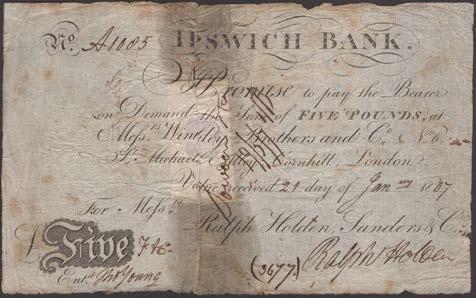 No. A1085 IPSWICH BANK.
I Promise to pay the Bearer
on Demand the Sum of FIVE POUNDS, at
Messrs Brothers and Co. No. 6,
St. Michael's Alley Cornhill, London.
Value received 21 day of Jany 1807
For Messrs
Ralph Holden, Sanders & Co.
£ Five
Entd. Thos Young
(3677.) Ralph Holden